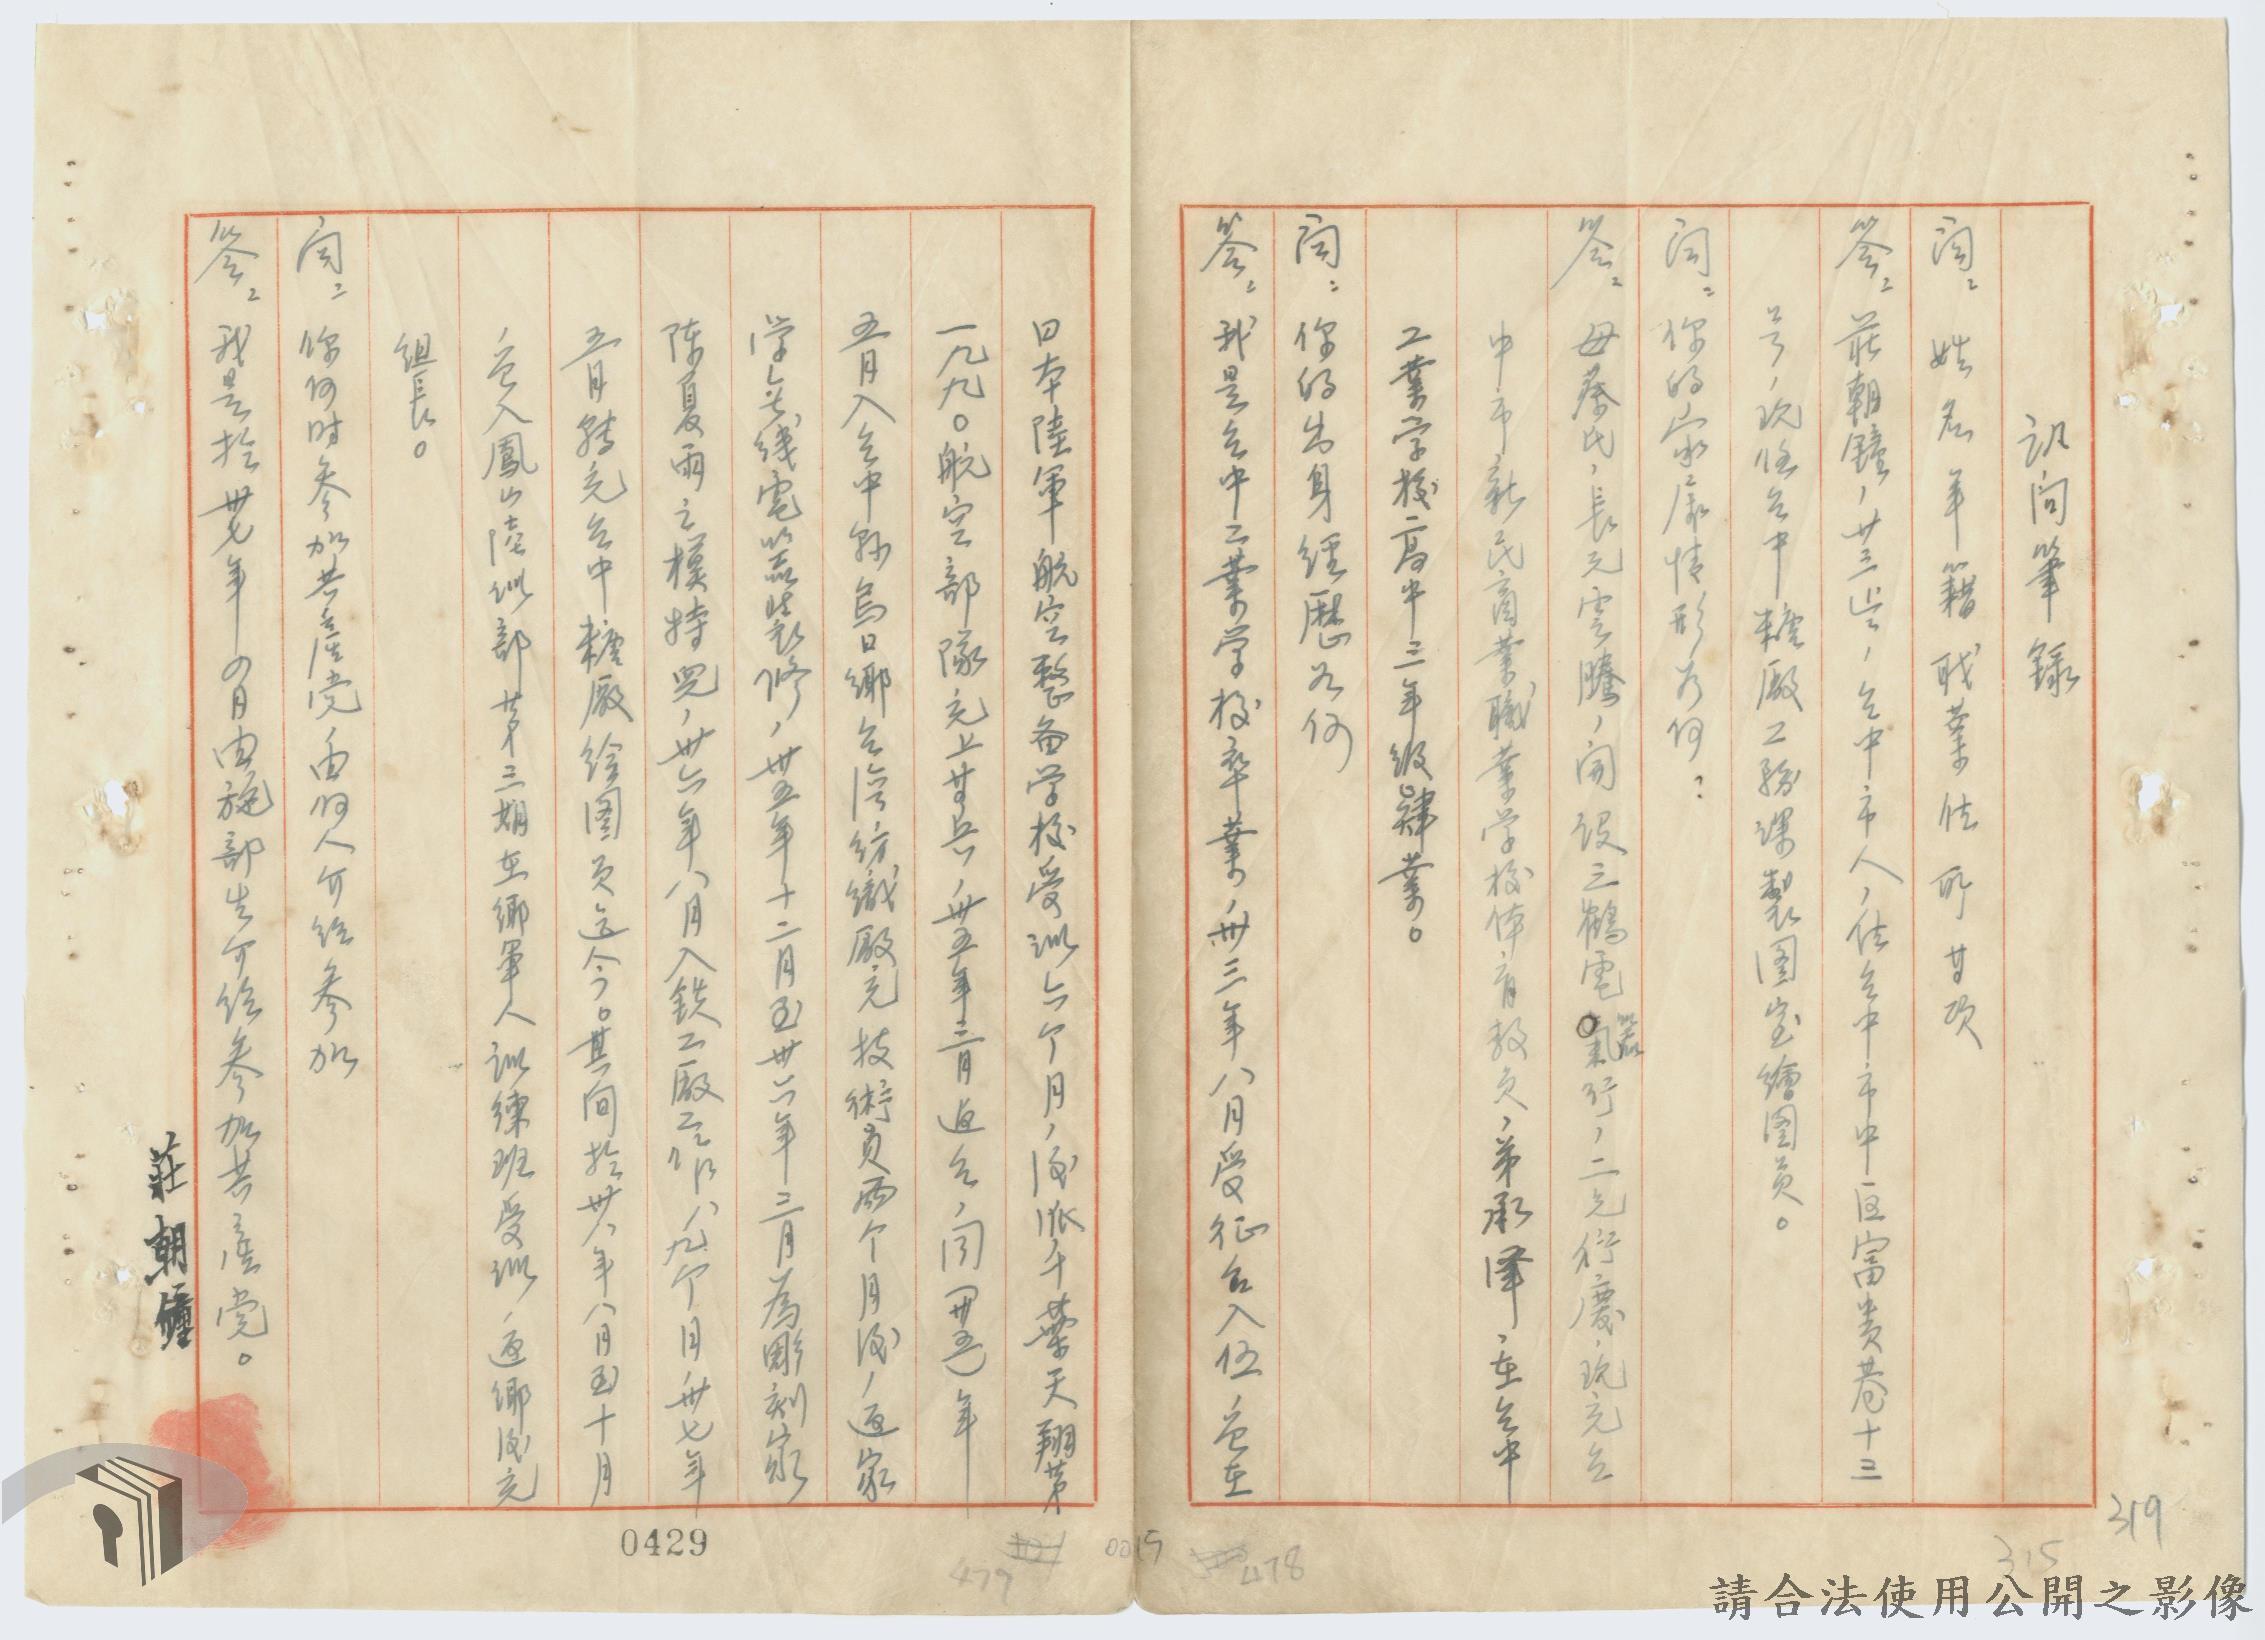 訊問筆錄
问：姓名年籍职業住所等項
答：莊朝鐘，廿三岁，台中市人，住台中市中区富貴巷十三
号，現任台中糖廠工務課製图室繪图員。
问：你的家庭情形为何？
答：母蔡氏，長兄雲騰，開设三鶴電器行，二兄衍慶，現充台
中市新民商業職業学校体育教員，弟承澤，在台中
工業学校高中三年级肄業。
问：你的出身經歷为何
答：我是台中工業学校卒業，卅三年八月受征召入伍，並在
日本陸軍航空整备学校受训六个月，後派千葉天翔第
一九九〇航空部隊充上等兵，卅五年三月返台，同(卅五)年
五月入台中縣烏日鄉台湾紡織廠充技術員兩个月後，返家
学无线電器装修，卅五年十二月至卅六年三月為彫刻家
陳夏雨之模特兒，卅六年八月入鉄工廠工作八、九个月，卅七年
五月轉充台中糖廠绘图員迄今。其间於卅八年八月至十月
並入鳳山陸训部第三期在鄉軍人训練班受训，返鄉後充
组長。
问：你何时参加共產党，由何人介绍参加
答：我是於卅七年四月由施部生介绍参加共產党。
莊朝鐘
0429
479
0015
478
315
319
請合法使用公開之影像